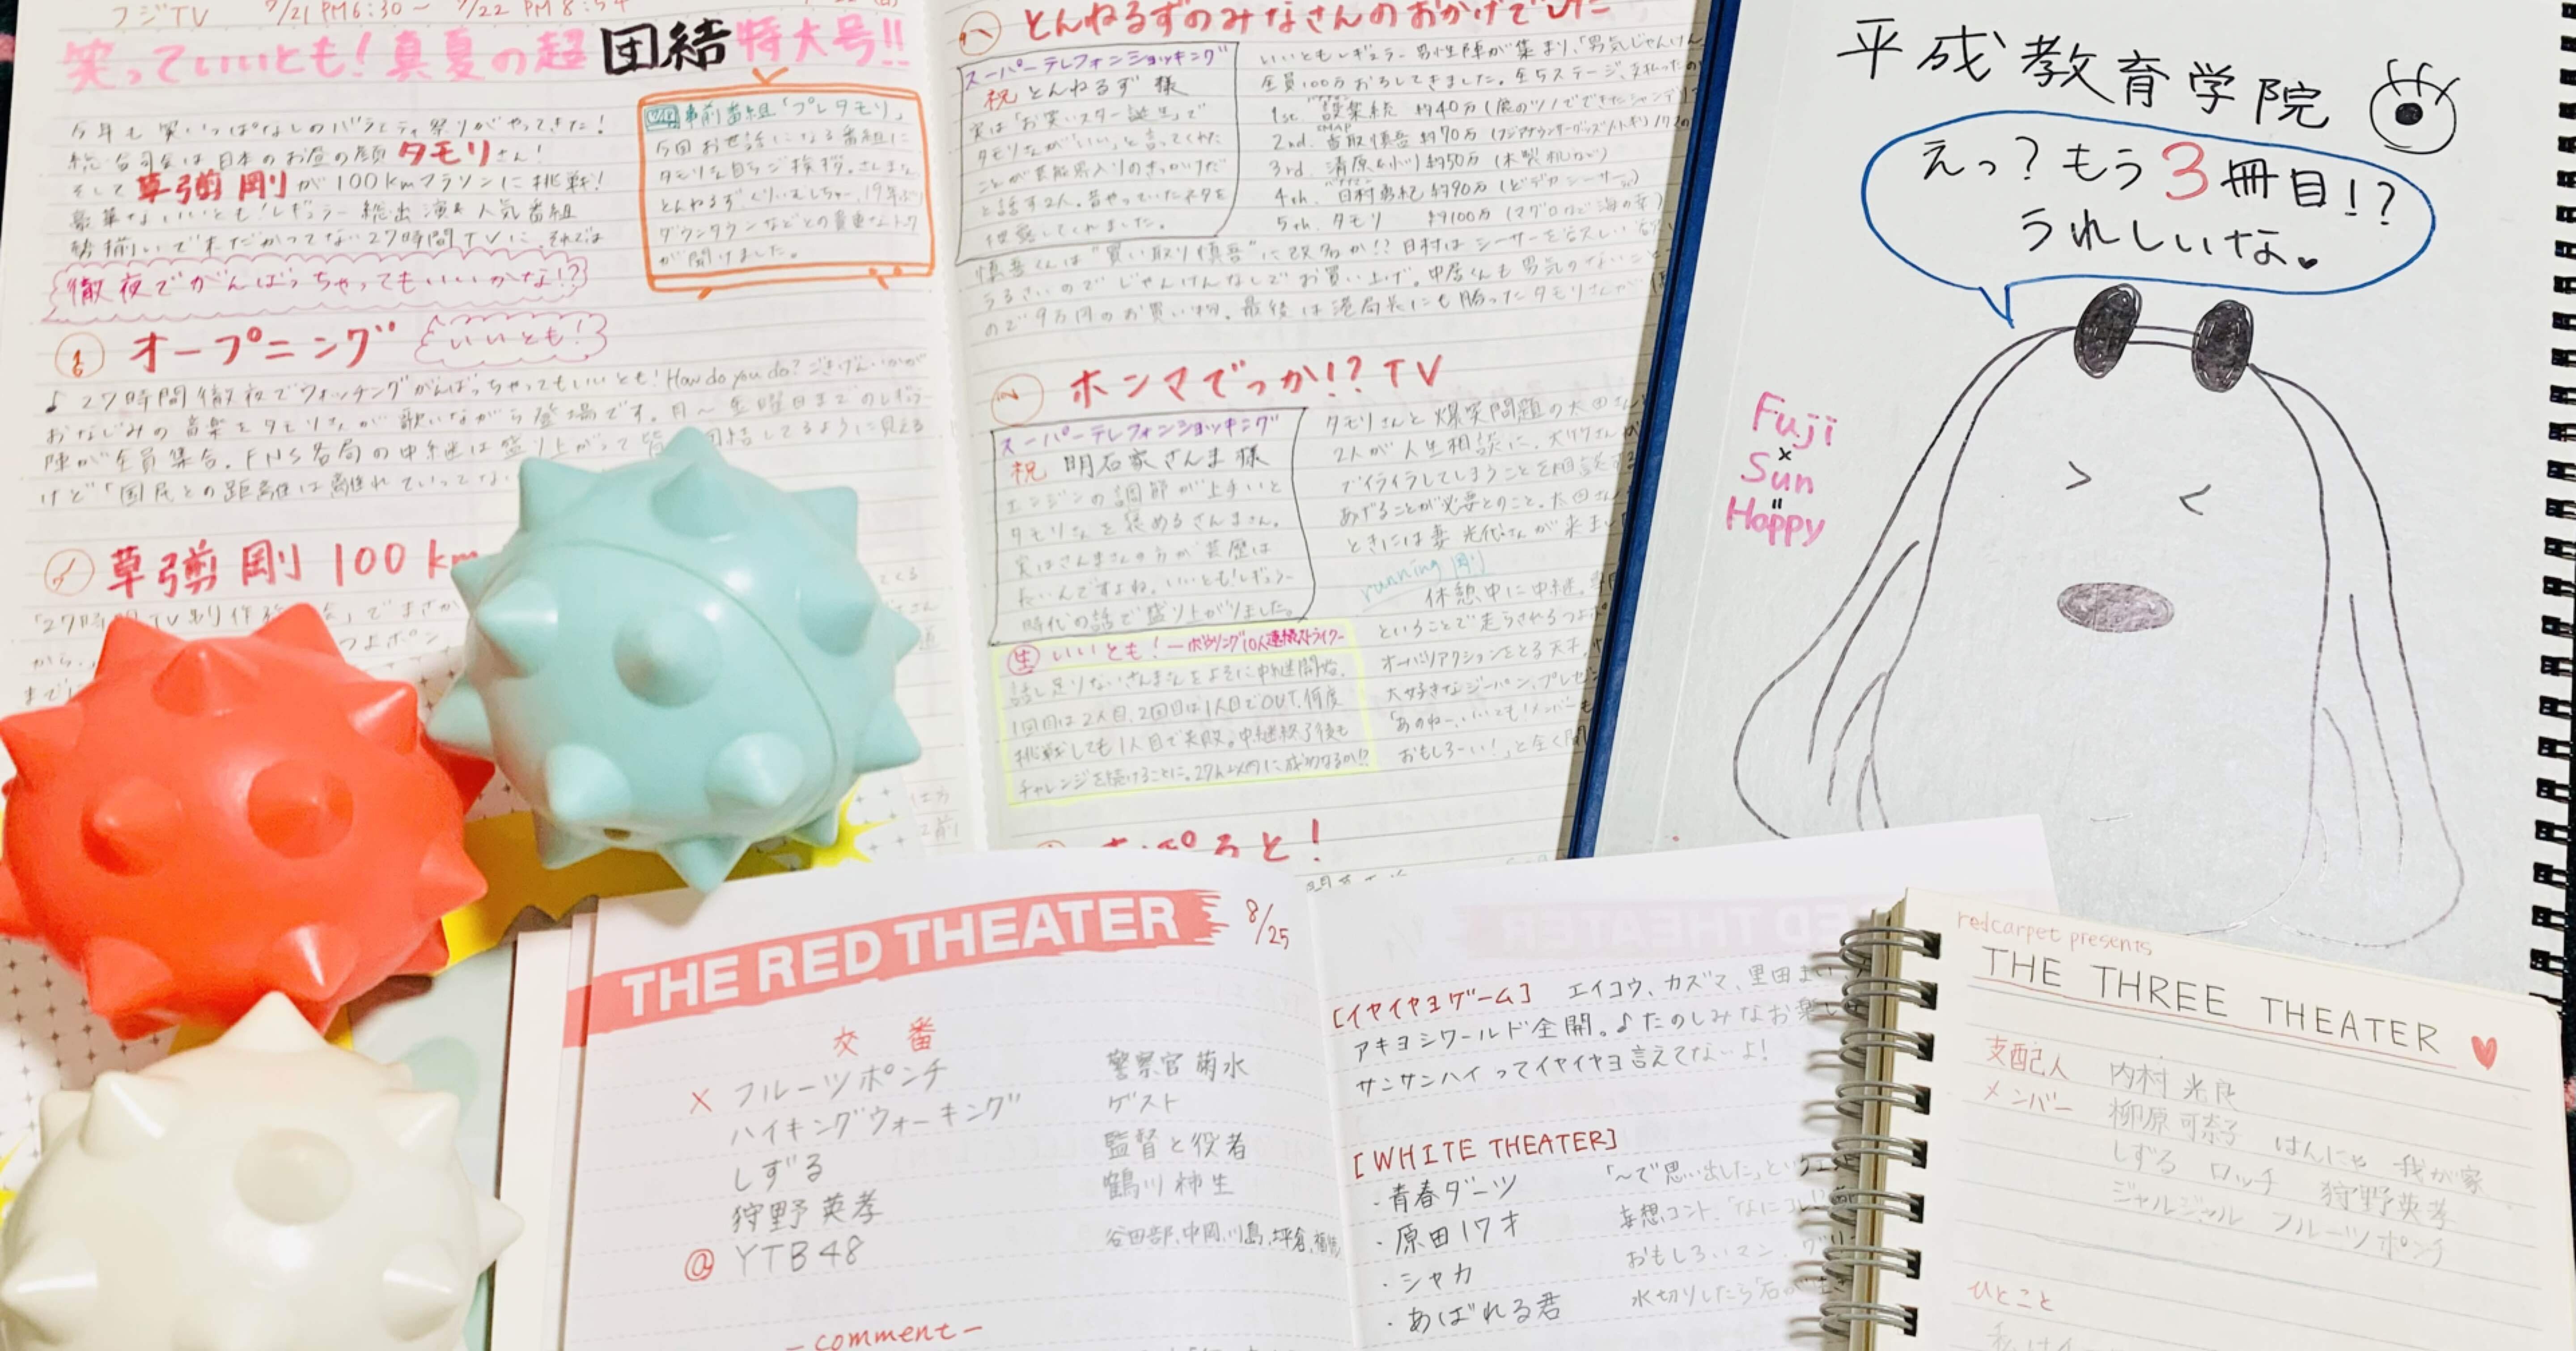 フジTV 7/21 PM6:30 ~ 7/22 PM 8:54
笑っていいとも!真夏の超団結特大号!!
今年も笑いっぱなしのバラエティ祭りがやってきた!
総合司会は日本のお昼の顔タモリさん!
そして草彅剛が100kmマラソンに挑戦!
豪華ないいとも!レギュラー総出演&人気番組
勢揃いで未だかつてない27時間TVに。それでは
徹夜でがんばっちゃってもいいかな!?
いいとも!
事前番組「プレタモリ」
今回お世話になる番組に
タモリさん自らご挨拶。さんまさん、
とんねるず、くりぃむしちゅー、19年ぶり
ダウンタウンなどとの貴重なトーク
が聞けました。
オープニング
♪27時間徹夜でウォッチングがんばっちゃってもいいとも!How do you do?ごきげんいかが
おなじみの音楽をタモリさんが歌いながら登場です。月~金曜日までのレギュラー
陣が全員集合。FNS各局の中継は盛り上がって皆団結してるように見える
けど「国民との距離は離れていってない
草彅剛 100km
とんねるずのみなさんのおかげでした
スーパーテレフォンショッキング
祝 とんねるず 様
実は「お笑いスター誕生」で
タモリさんが「いい」と言ってくれた
ことが芸能界入りのきっかけだ
と話す2人。昔やっていたネタを
披露してくれました。
いいともレギュラー男性陣が集まり、「男気じゃんけん
全員100万おろしてきました。全5ステージ、支払ったの
1st. 設楽統 約40万
2nd. 香取慎吾 約70万
3rd. 清原 約50万 (木製机など)
4th. 日村勇紀 約90万 (どデカシーサー)
5th. タモリ 約100万
慎吾くんは"買い取り慎吾"に改名か!?日村はシーサーを
うるさいのでじゃんけんなしでお買い上げ。中居くんも男気のないこと
ので9万円のお買い物。最後は港局長にも勝ったタモリさんが
ホンマでっか!?TV
スーパーテレフォンショッキング
祝 明石家さんま 様
エンジンの調節が上手いと
タモリさんを褒めるさんまさん。
実はさんまさんの方が芸歴は
長いんですよね。いいとも!レギュラー
時代の話で盛り上がりました。
タモリさんと爆笑問題の太田さん
2人が人生相談に。
でイライラしてしまうことを相談する
あげることが必要とのこと。太田さん
ときには妻 光代さんが来ました
running 剛
休憩中に中継。
ということで走らされるつよポン
オーバーアクションをとる天才。
大好きなジーパン、プレゼン
「あのねー、いいとも!メンバーも
おもしろーい!」と全く
生 いいとも!-ボウリング10人連続ストライク-
話し足りないさんまさんをよそに中継開始。
1回目は2人目、2回目は1人目でOUT。何度
挑戦しても1人目で失敗。中継終了後も
チャレンジを続けることに。27h以内に成功するか!?
平成教育学院
えっ?もう3冊目!?
うれしいな。
Fuji
×
Sun
=
Happy
THE RED THEATER 8/25
交番
× フルーツポンチ 警察官 菊水
ハイキングウォーキング ゲスト
しずる 監督と役者
狩野英孝 鶴川柿生
@ YTB48 谷田部、中岡、川島、坪倉、
-comment-
[イヤイヤヨゲーム] エイコウ、カズマ、里田まい
アキヨシワールド全開。♪たのしみなお楽し
サンサンハイってイヤイヤヨ言えてないよ!
[WHITE THEATER]
・青春ダーツ 「~で思い出した」という
・原田17才 妄想コント。「なにコレ!?
・シャカ おもしろいマン、
・あばれる君 水切りしたら石が
redcarpet presents
THE THREE THEATER
支配人 内村光良
メンバー 柳原可奈子 はんにゃ 我が家
しずる ロッチ 狩野英孝
ジャルジャル フルーツポンチ
ひとこと